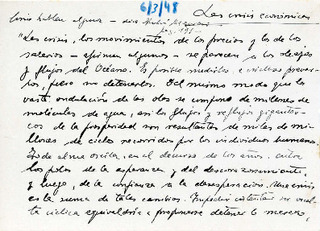 6/3/48
Las crisis económicas
como hablan algunos
pag. 191
"Las crisis, los movimientos de los precios y los de los
salarios — afirman algunos — se parecen a los oleajes
y flujos del Océano. Es posible medirlos, e incluso prever-
los, pero no detenerlos. Del mismo modo que la
vasta ondulación de las olas se compone de millones de
moléculas de agua, así los flujos y reflujos gigantes-
cos de la prosperidad son resultantes de miles de mi-
llones de ciclos recorridos por los individuos humanos.
Toda alma oscila, en el decurso de los años, entre
los polos de la esperanza y del descorazonamiento,
y luego, de la confianza a la desesperación. Una crisis
es la suma de tales cambios. Impedir
cíclica equivaldría a proponerse detener la marea,